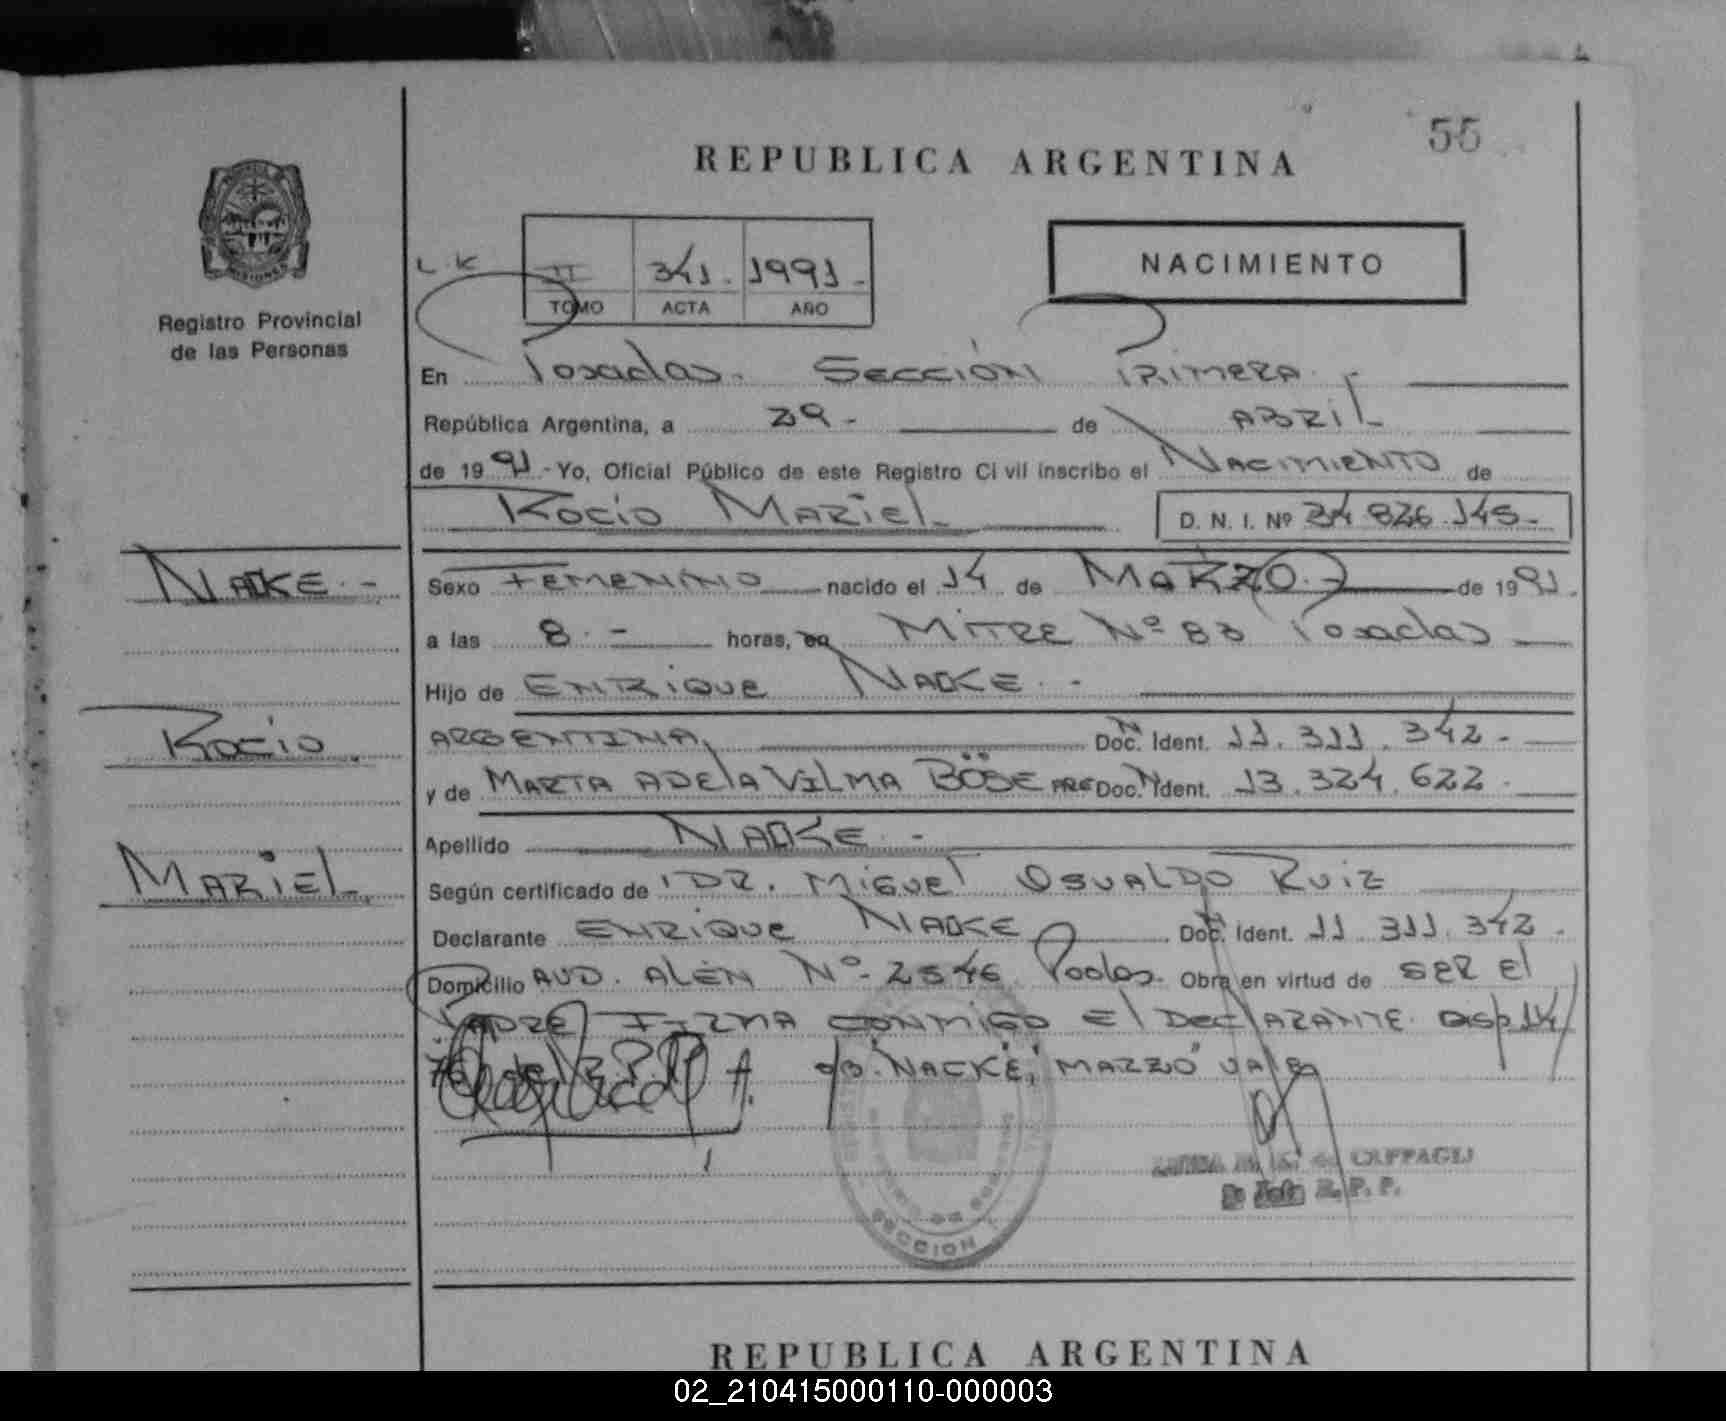 55
REPUBLICA ARGENTINA
MISIONES
Registro Provincial
de las Personas
L.K
II 341. 1991.-
TOMO ACTA AÑO
NACIMIENTO
En Posadas. Sección Primera.-
República Argentina, a 29.- de ABRIL
de 1991.- Yo, Oficial Público de este Registro Civil inscribo el NACIMIENTO de
Rocio MARIEL D. N. I. Nº 34 826.145.-
NACKE.-
Sexo FEMENINO nacido el 14 de MARZO.- de 1991.
a las 8.- horas, en MITRE Nº 83 Posadas
Hijo de ENRIQUE NACKE.-
Rocio
ARGENTINA, Doc. Ident. 11.311.342.-
y de MARTA ADELA VILMA BÖSE ARG Doc. Ident. 13.324.622.-
Apellido NACKE.-
MARIEL
Según certificado de DR. MIGUEL OSVALDO RUIZ
Declarante ENRIQUE NACKE Doc. Ident. 11 311.342.
Domicilio AVD. ALEN Nº 2546 Podas. Obra en virtud de SER El
PADRE FIRMA CONMIGO El DEClARANTE. DISP 14/
del R.P.P. "NACKE", MARZO" VALE
SECCION
R. P. P.
REPUBLICA ARGENTINA
02_210415000110-000003